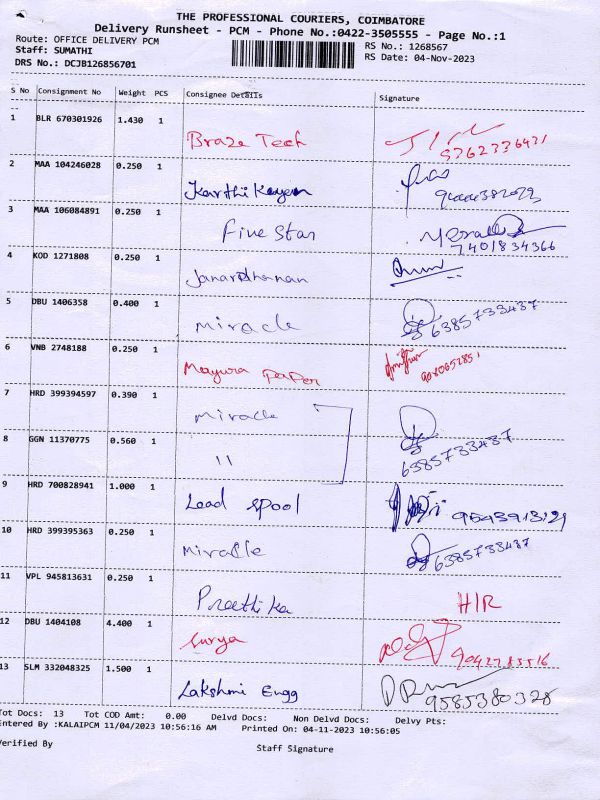 THE PROFESSIONAL COURIERS, COIMBATORE
Delivery Runsheet - PCM - Phone No.:0422-3505555 - Page No.:1
Route: OFFICE DELIVERY PCM RS No.: 1268567
Staff: SUMATHI RS Date: 04-Nov-2023
DRS No.: DCJB126856701
S No Consignment No Weight PCS Consignee Details Signature
1 BLR 670301926 1.430 1
Braze Tech
2 MAA 104246028 0.250 1
Karthikeyen
3 MAA 106084891 0.250 1
Five Star 7401834366
4 KOD 1271808 0.250 1
Janardhanan
5 DBU 1406358 0.400 1
Miracle 6385733437
6 VNB 2748188 0.250 1
Mayura paper
7 HRD 399394597 0.390 1
Miracle
8 GGN 11370775 0.560 1
11 6385733437
9 HRD 700828941 1.000 1
Lead Spool
10 HRD 399395363 0.250 1
Miracle 6385733437
11 VPL 945813631 0.250 1
Preethika H/R
12 DBU 1404108 4.400 1
Surya
13 SLM 332048325 1.500 1
Lakshmi Engg 9585380328
Tot Docs: 13 Tot COD Amt: 0.00 Delvd Docs: Non Delvd Docs: Delvy Pts:
Entered By :KALAIPCM 11/04/2023 10:56:16 AM Printed On: 04-11-2023 10:56:05
Verified By Staff Signature